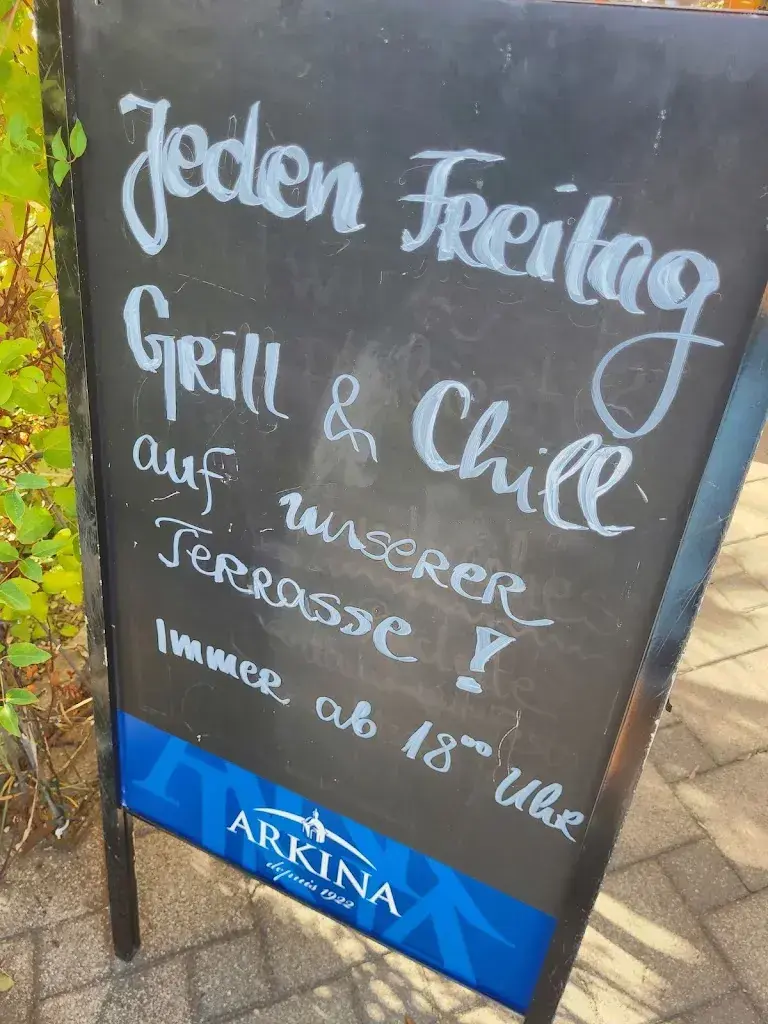 Jeden Freitag
Grill & Chill
auf unserer
Terrasse!
Immer ab 18⁰⁰ Uhr
ARKINA
depuis 1922